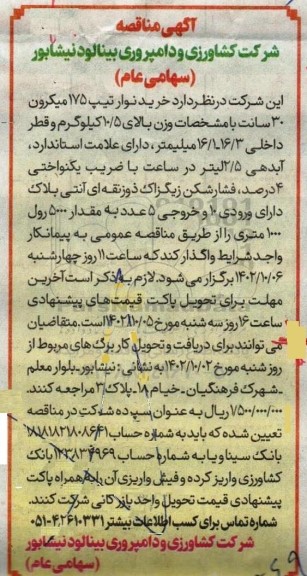 آگهی مناقصه
شرکت کشاورزی و دامپروری بینالود نیشابور
(سهامی عام)
این شرکت در نظر دارد خرید نوار تیپ ۱۷۵ میکرون
۳۰ سانت با مشخصات وزن بالای ۱۰/۵ کیلوگرم و قطر
داخلی ۱۶/۳-۱۶/۱ میلیمتر، دارای علامت استاندارد،
آبدهی ۲/۵ لیتر در ساعت با ضریب یکنواختی
۴ درصد، فشارشکن زیگزاگ ذوزنقه ای آنتی پلاک
دارای ورودی ۱۰ و خروجی ۵ عدد به مقدار ۵۰۰۰ رول
۱۰۰۰ متری را از طریق مناقصه عمومی به پیمانکار
واجد شرایط واگذار کند که ساعت ۱۱ روز چهارشنبه
۱۴۰۲/۱۰/۰۶ برگزار می شود. لازم به ذکر است آخرین
مهلت برای تحویل پاکت قیمت های پیشنهادی
ساعت ۱۶ روز سه شنبه مورخ ۱۴۰۲/۱۰/۰۵ است. متقاضیان
می توانند برای دریافت و تحویل کاربرگ های مربوط از
روز شنبه مورخ ۱۴۰۲/۱۰/۰۲ به نشانی: نیشابور-بلوار معلم
-شهرک فرهنگیان-خیام ۷-پلاک ۳ مراجعه کنند.
۷۵۰۰/۰۰۰/۰۰۰ ریال به عنوان سپرده شرکت در مناقصه
تعیین شده که باید به شماره حساب
بانک سینا و یا به شماره حساب بانک
کشاورزی واریز کرده و فیش واریزی آن را به همراه پاکت
پیشنهادی قیمت تحویل واحد بازرگانی شرکت کنند.
شماره تماس برای کسب اطلاعات بیشتر ۴۲۶۱۰۳۳۱-۰۵۱
شرکت کشاورزی و دامپروری بینالود نیشابور
(سهامی عام)